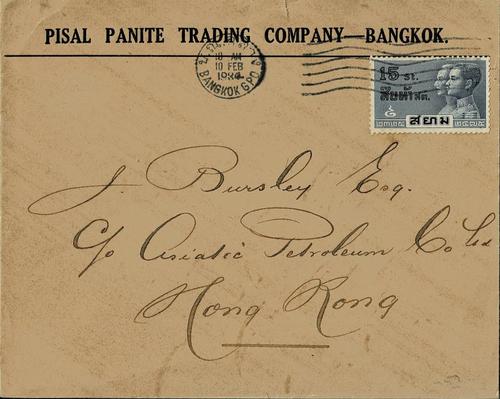 PISAL PANITE TRADING COMPANY—BANGKOK.
10 AM
10 FEB
BANGKOK G.P.O.
15 st.
สิบห้า สต.
สยาม
๒๓๒๕
๒๔๗๕
J. Bursley Esq.
C/o Asiatic Petroleum Co Ltd
Hong Kong